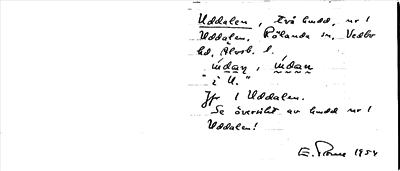 Uddalen, två hmd, nr 1
Uddalen, Rölanda sn, Vedbo
hd, Älvsb. l.
ùdan, ùdan
"i U."
Jfr 1 Uddalen.
Se översikt av hmd nr 1
Uddalen!
1954